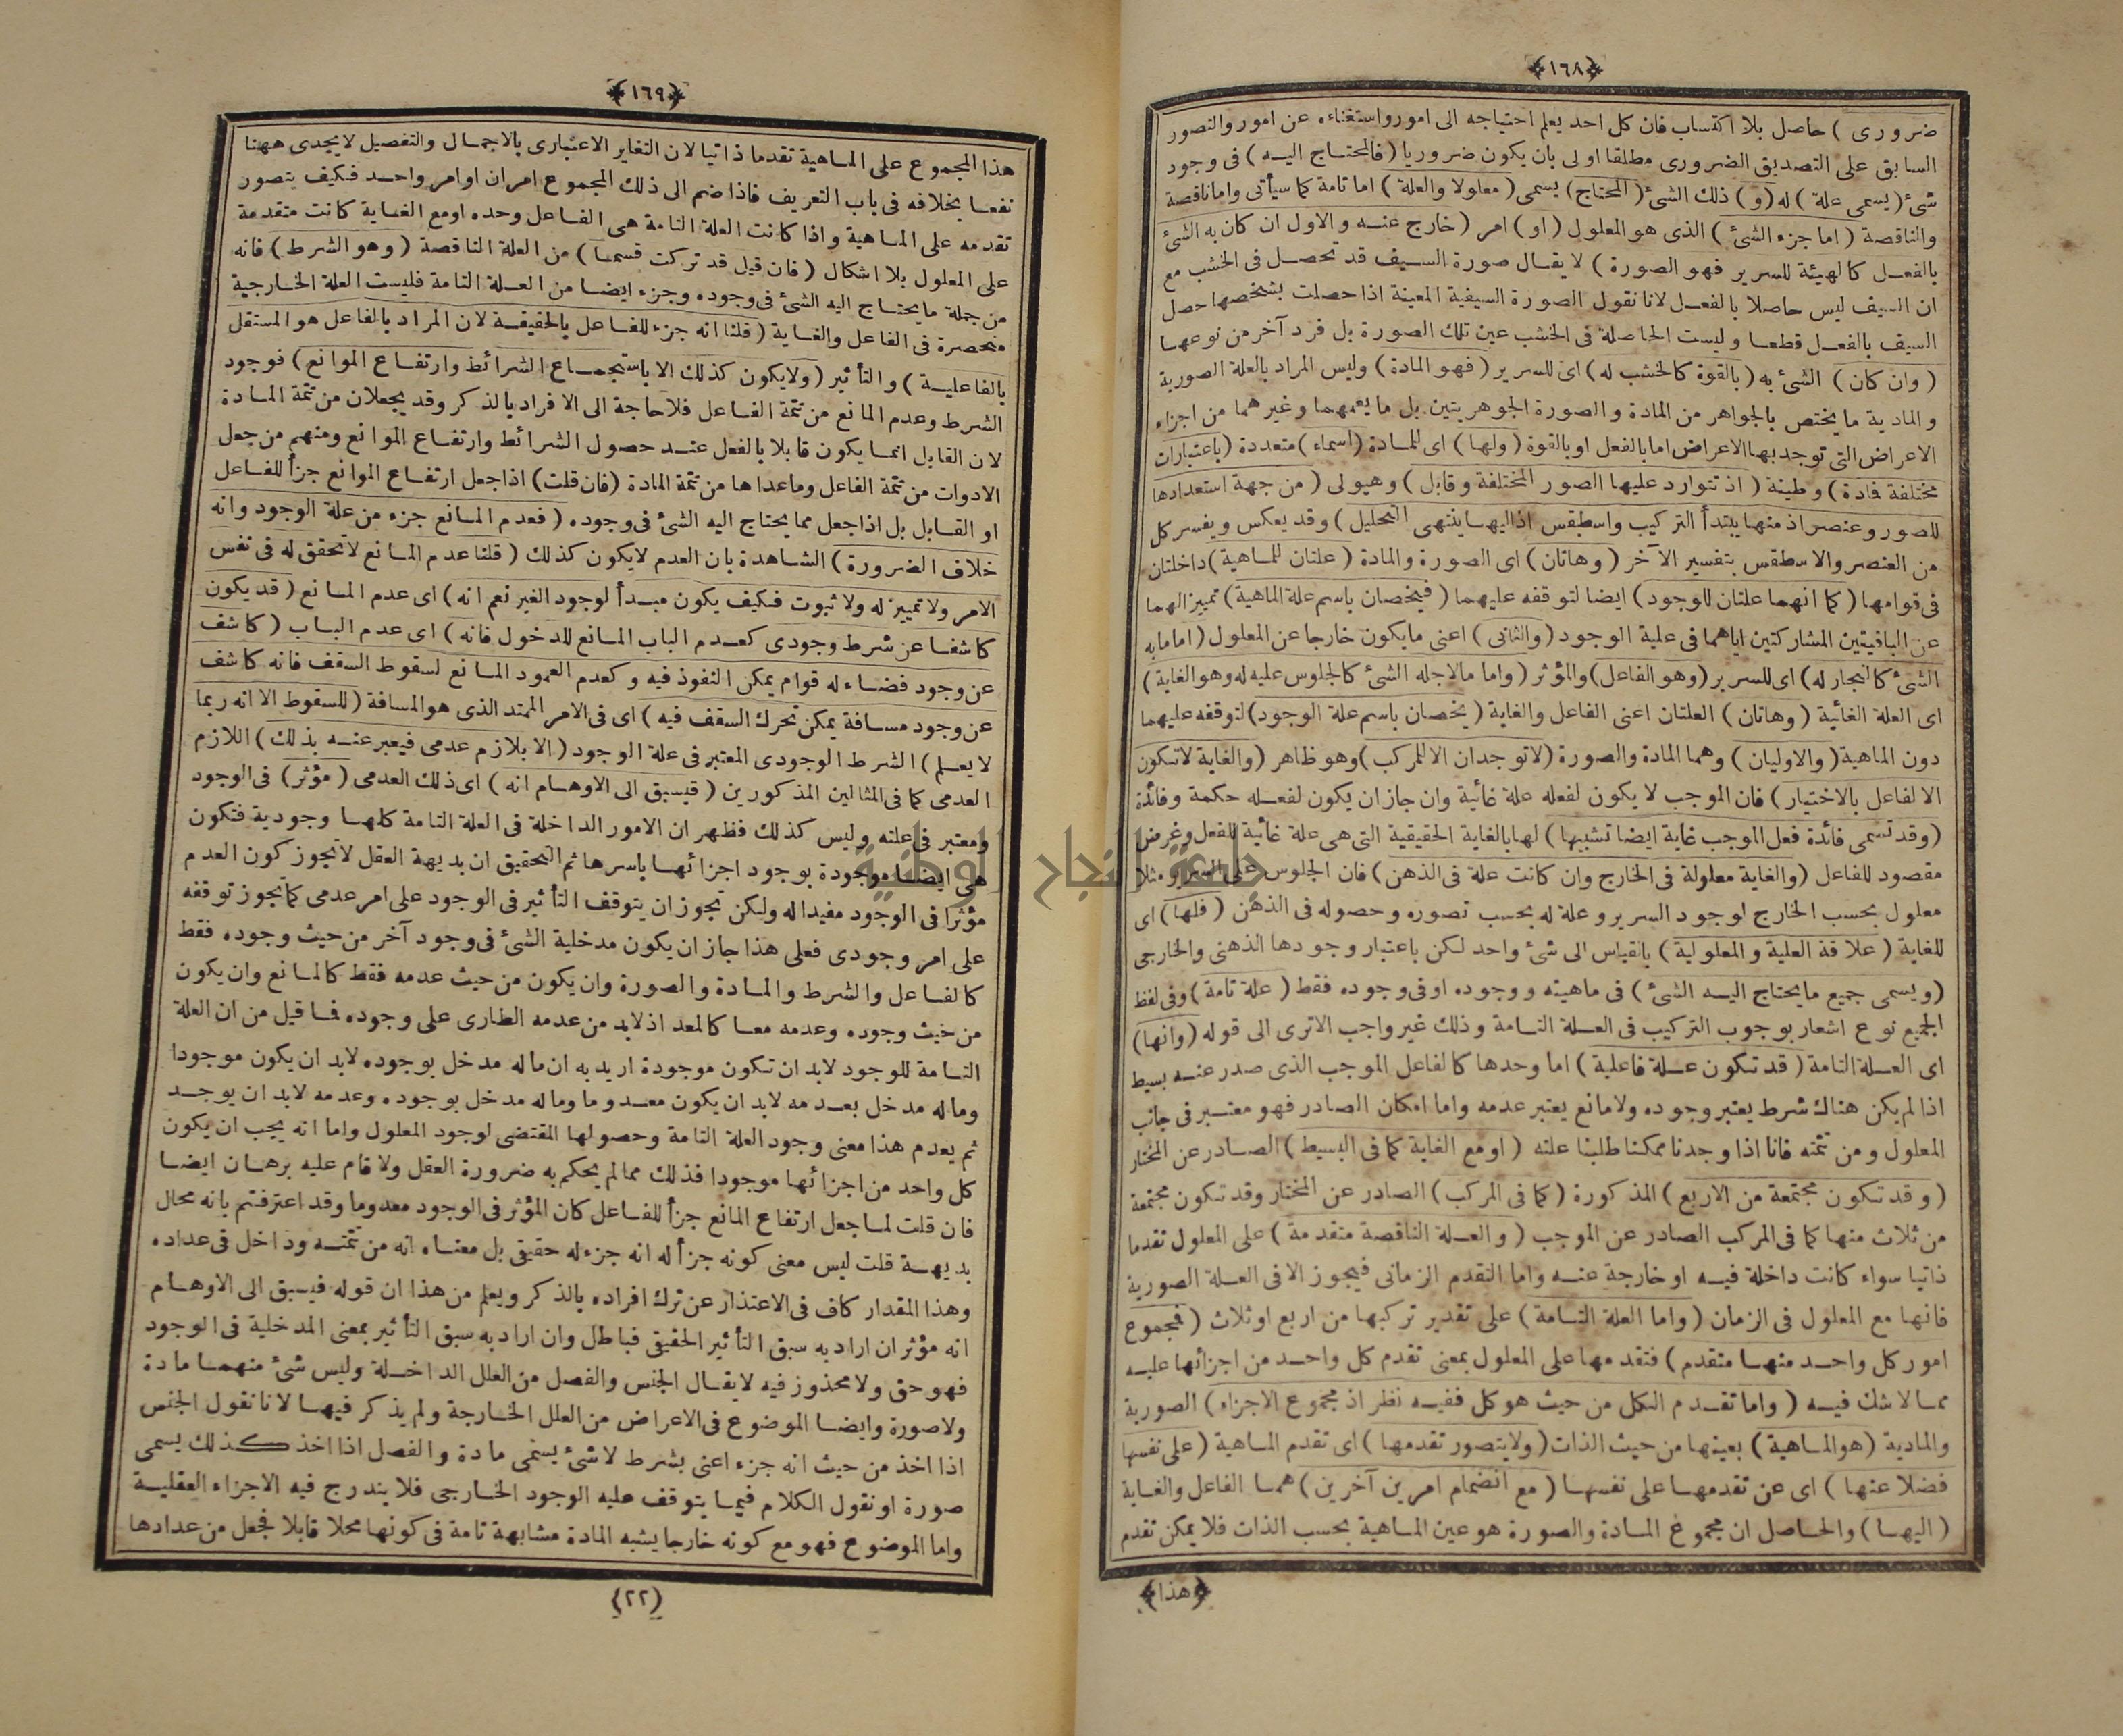 ﴿١٦٨﴾
ضرورى ) حاصل بلا اكتساب فان كل احد يعلم احتياجه الى امور واستغناءه عن امور والتصور
السابق على التصديق الضرورى مطلقا اولى بان يكون ضروريا ( فالمحتاج اليه ) فى وجود
شئ ( يسمى علة ) له ( و ) ذلك الشئ ( المحتاج ) يسمى ( معلولا والعلة ) اما تامة كما سيأتى واما ناقصة
والناقصة ( اما جزء الشئ ) الذى هو المعلول ( او ) امر ( خارج عنه والاول ان كان به الشئ
بالفعل كالهيئة للسرير فهو الصورة ) لا يقال صورة السيف قد تحصل فى الخشب مع
ان السيف ليس حاصلا بالفعل لانا نقول الصورة السيفية المعينة اذا حصلت بشخصها حصل
السيف بالفعل قطعا وليست الحاصلة فى الخشب عين تلك الصورة بل فرد آخر من نوعها
( وان كان ) الشئ به ( بالقوة كالخشب له ) اى للسرير ( فهو المادة ) وليس المراد بالعلة الصورية
والمادية ما يختص بالجواهر من المادة والصورة الجوهريتين بل ما يعمهما وغيرهما من اجزاء
الاعراض التى توجد بها الاعراض اما بالفعل او بالقوة ( ولها ) اى للمادة ( اسماء ) متعددة ( باعتبارات
مختلفة فمادة ) وطينة ( اذ تتوارد عليها الصور المختلفة وقابل ) وهيولى ( من جهة استعدادها
للصور وعنصر اذ منها يبتدأ التركيب واسطقس اذ اليها ينتهى التحليل ) وقد يعكس ويفسر كل
من العنصر والاسطقس بتفسير الآخر ( وهاتان ) اى الصورة والمادة ( علتان للماهية ) داخلتان
فى قوامها ( كما انهما علتان للوجود ) ايضا لتوقفه عليهما ( فيخصان باسم علة الماهية ) تمييزا لهما
عن الباقيتين المشاركتين اياهما فى علية الوجود ( والثانى ) اعنى ما يكون خارجا عن المعلول ( اما ما به
الشئ كالنجار له ) اى للسرير ( وهو الفاعل ) والمؤثر ( واما ما لاجله الشئ كالجلوس عليه له وهو الغاية )
اى العلة الغائية ( وهاتان ) العلتان اعنى الفاعل والغاية ( يخصان باسم علة الوجود ) لتوقفه عليهما
دون الماهية ( والاوليان ) وهما المادة والصورة ( لا توجدان الا للمركب ) وهو ظاهر ( والغاية لا تكون
الا لفاعل بالاختيار ) فان الموجب لا يكون لفعله علة غائية وان جاز ان يكون لفعله حكمة وفائدة
( وقد تسمى فائدة فعل الموجب غاية ايضا تشبيها ) لها بالغاية الحقيقية التى هى علة غائية للفعل وغرض
مقصود للفاعل ( والغاية معلولة فى الخارج وان كانت علة فى الذهن ) فان الجلوس على السرير مثلا
معلول بحسب الخارج لوجود السرير وعلة له بحسب تصوره وحصوله فى الذهن ( فلها ) اى
للغاية ( علاقة العلية والمعلولية ) بالقياس الى شئ واحد لكن باعتبار وجودها الذهنى والخارجى
( ويسمى جميع ما يحتاج اليه الشئ ) فى ماهيته ووجوده او فى وجوده فقط ( علة تامة ) وفى لفظ
الجميع نوع اشعار بوجوب التركيب فى العلة التامة وذلك غير واجب الا ترى الى قوله ( وانها )
اى العلة التامة ( قد تكون علة فاعلية ) اما وحدها كالفاعل الموجب الذى صدر عنه بسيط
اذا لم يكن هناك شرط يعتبر وجوده ولا مانع يعتبر عدمه واما امكان الصادر فهو معتبر فى جانب
المعلول ومن تتمته فانا اذا وجدنا ممكنا طلبنا علته ( او مع الغاية كما فى البسيط ) الصادر عن المختار
( وقد تكون مجتمعة من الاربع ) المذكورة ( كما فى المركب ) الصادر عن المختار وقد تكون مجتمعة
من ثلاث منها كما فى المركب الصادر عن الموجب ( والعلة الناقصة متقدمة ) على المعلول تقدما
ذاتيا سواء كانت داخلة فيه او خارجة عنه واما التقدم الزمانى فيجوز الا فى العلة الصورية
فانها مع المعلول فى الزمان ( واما العلة التامة ) على تقدير تركبها من اربع او ثلاث ( فمجموع
امور كل واحد منها متقدم ) فتقدمها على المعلول بمعنى تقدم كل واحد من اجزائها عليه
مما لا شك فيه ( واما تقدم الكل من حيث هو كل ففيه نظر اذ مجموع الاجزاء ) الصورية
والمادية ( هو الماهية ) بعينها من حيث الذات ( ولا يتصور تقدمها ) اى تقدم الماهية ( على نفسها
فضلا عنها ) اى عن تقدمها على نفسها ( مع انضمام امرين آخرين ) هما الفاعل والغاية
( اليها ) والحاصل ان مجموع المادة والصورة هو عين الماهية بحسب الذات فلا يمكن تقدم
﴿هذا﴾
﴿١٦٩﴾
هذا المجموع على الماهية تقدما ذاتيا لان التغاير الاعتبارى بالاجمال والتفصيل لا يجدى ههنا
نفعا بخلافه فى باب التعريف فاذا ضم الى ذلك المجموع امران او امر واحد فكيف يتصور
تقدمه على الماهية واذا كانت العلة التامة هى الفاعل وحده او مع الغاية كانت متقدمة
على المعلول بلا اشكال ( فان قيل قد تركت قسما ) من العلة الناقصة ( وهو الشرط ) فانه
من جملة ما يحتاج اليه الشئ فى وجوده وجزء ايضا من العلة التامة فليست العلة الخارجية
منحصرة فى الفاعل والغاية ( قلنا انه جزء للفاعل بالحقيقة لان المراد بالفاعل هو المستقل
بالفاعلية ) والتأثير ( ولا يكون كذلك الا باستجماع الشرائط وارتفاع الموانع ) فوجود
الشرط وعدم المانع من تتمة الفاعل فلا حاجة الى الافراد بالذكر وقد يجعلان من تتمة المادة
لان القابل انما يكون قابلا بالفعل عند حصول الشرائط وارتفاع الموانع ومنهم من جعل
الادوات من تتمة الفاعل وما عداها من تتمة المادة ( فان قلت ) اذا جعل ارتفاع الموانع جزأ للفاعل
او القابل بل اذا جعل مما يحتاج اليه الشئ فى وجوده ( فعدم المانع جزء من علة الوجود وانه
خلاف الضرورة ) الشاهدة بان العدم لا يكون كذلك ( قلنا عدم المانع لا تحقق له فى نفس
الامر ولا تمييز له ولا ثبوت فكيف يكون مبدأ لوجود الغير نعم انه ) اى عدم المانع ( قد يكون
كاشفا عن شرط وجودى كعدم الباب المانع للدخول فانه ) اى عدم الباب ( كاشف
عن وجود فضاء له قوام يمكن النفوذ فيه وكعدم العمود المانع لسقوط السقف فانه كاشف
عن وجود مسافة يمكن تحرك السقف فيه ) اى فى الامر الممتد الذى هو المسافة ( للسقوط الا انه ربما
لا يعلم ) الشرط الوجودى المعتبر فى علة الوجود ( الا بلازم عدمى فيعبر عنه بذلك ) اللازم
العدمى كما فى المثالين المذكورين ( فيسبق الى الاوهام انه ) اى ذلك العدمى ( مؤثر ) فى الوجود
ومعتبر فى علته وليس كذلك فظهر ان الامور الداخلة فى العلة التامة كلها وجودية فتكون
هى ايضا موجودة بوجود اجزائها باسرها ثم التحقيق ان بديهة العقل لا تجوز كون العدم
مؤثرا فى الوجود مفيدا له ولكن تجوز ان يتوقف التأثير فى الوجود على امر عدمى كما تجوز توقفه
على امر وجودى فعلى هذا جاز ان يكون مدخلية الشئ فى وجود آخر من حيث وجوده فقط
كالفاعل والشرط والمادة والصورة وان يكون من حيث عدمه فقط كالمانع وان يكون
من حيث وجوده وعدمه معا كالمعد اذ لابد من عدمه الطارى على وجوده فما قيل من ان العلة
التامة للوجود لابد ان تكون موجودة اريد به ان ما له مدخل بوجوده لابد ان يكون موجودا
وما له مدخل بعدمه لابد ان يكون معدوما وما له مدخل بوجوده وعدمه لابد ان يوجد
ثم يعدم هذا معنى وجود العلة التامة وحصولها المقتضى لوجود المعلول واما انه يجب ان يكون
كل واحد من اجزائها موجودا فذلك مما لم يحكم به ضرورة العقل ولا قام عليه برهان ايضا
فان قلت لما جعل ارتفاع المانع جزأ للفاعل كان المؤثر فى الوجود معدوما وقد اعترفتم بانه محال
بديهة قلت ليس معنى كونه جزأ له انه جزء له حقيقى بل معناه انه من تتمته وداخل فى عداده
وهذا المقدار كاف فى الاعتذار عن ترك افراده بالذكر ويعلم من هذا ان قوله فيسبق الى الاوهام
انه مؤثر ان اراد به سبق التأثير الحقيقى فباطل وان اراد به سبق التأثير بمعنى المدخلية فى الوجود
فهو حق ولا محذوز فيه لا يقال الجنس والفصل من العلل الداخلة وليس شئ منهما مادة
ولا صورة وايضا الموضوع فى الاعراض من العلل الخارجة ولم يذكر فيها لانا نقول الجنس
اذا اخذ من حيث انه جزء اعنى بشرط لا شئ يسمى مادة والفصل اذا اخذ كذلك يسمى
صورة او نقول الكلام فيما يتوقف عليه الوجود الخارجى فلا يندرج فيه الاجزاء العقلية
واما الموضوع فهو مع كونه خارجا يشبه المادة مشابهة تامة فى كونها محلا قابلا فجعل من عدادها
﴿٢٢﴾
جامعة النجاح الوطنية